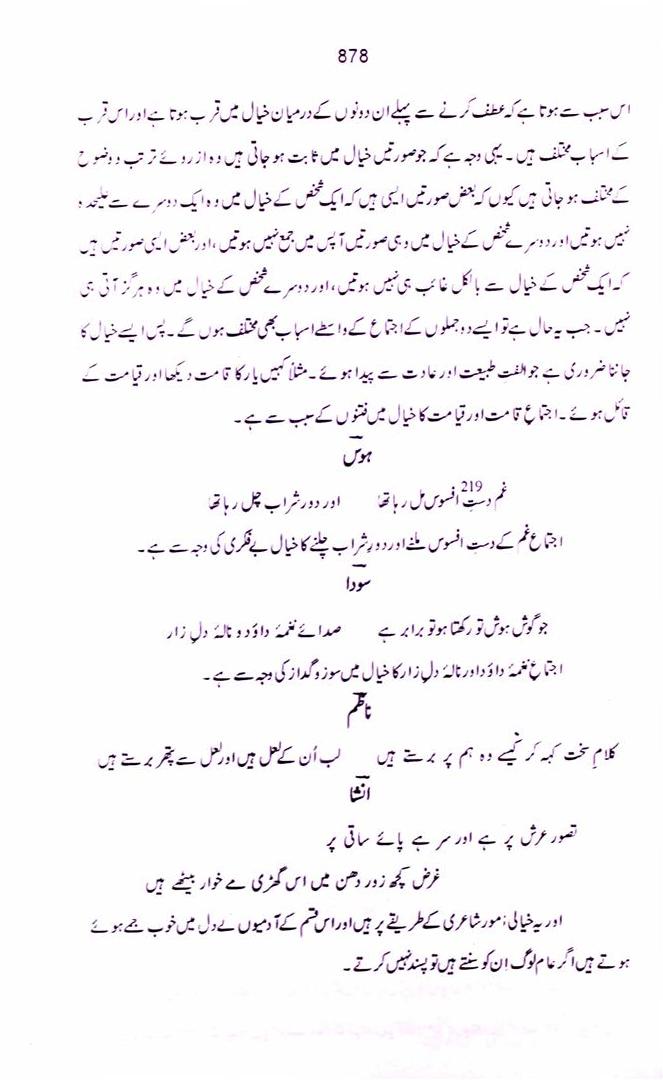 878
اس سبب سے ہوتا ہے کہ عطف کرنے سے پہلے ان دونوں کے درمیان خیال میں قرب ہوتا ہے اور اس قرب
کے اسباب مختلف ہیں ۔ یہی وجہ ہے کہ جو صورتیں خیال میں ثابت ہو جاتی ہیں وہ از روئے ترتب و وضوح
کے مختلف ہو جاتی ہیں کیوں کہ بعض صورتیں ایسی ہیں کہ ایک شخص کے خیال میں وہ ایک دوسرے سے علیحدہ
نہیں ہوتیں اور دوسرے شخص کے خیال میں وہی صورتیں آپس میں جمع نہیں ہوتیں ، اور بعض ایسی صورتیں ہیں
کہ ایک شخص کے خیال سے بالکل غائب ہی نہیں ہوتیں ، اور دوسرے شخص کے خیال میں وہ ہرگز آتی ہی
نہیں ۔ جب یہ حال ہے تو ایسے دو جملوں کے اجتماع کے واسطے اسباب بھی مختلف ہوں گے ۔ پس ایسے خیال کا
جاننا ضروری ہے جو الفت طبیعت اور عادت سے پیدا ہوئے ۔ مثلاً کہیں یار کا قامت دیکھا اور قیامت کے
قائل ہوئے ۔ اجتماعِ قامت اور قیامت کا خیال میں فتنوں کے سبب سے ہے ۔
ہوس
غم دستِ 219 افسوس مل رہا تھا اور دور شراب چل رہا تھا
اجتماع غم کے دستِ افسوس ملنے اور دورِ شراب چلنے کا خیال بے فکری کی وجہ سے ہے ۔
سودا
جو گوش ہوش تو رکھتا ہو تو برابر ہے صدائے نغمۂ داؤد و نالۂ دلِ زار
اجتماعِ نغمۂ داؤد اور نالۂ دلِ زار کا خیال میں سوز و گداز کی وجہ سے ہے ۔
ناظم
کلامِ سخت کہہ کر کیسے وہ ہم پر برستے ہیں لب اُن کے لعل ہیں اور لعل سے پتھر برستے ہیں
انشا
تصور عرش پر ہے اور سر ہے پائے ساقی پر
غرض کچھ زور دھن میں اس گھڑی مے خوار بیٹھے ہیں
اور یہ خیالی امور شاعری کے طریقے پر ہیں اور اس قسم کے آدمیوں کے دل میں خوب جمے ہوئے
ہوتے ہیں اگر عام لوگ اِن کو سنتے ہیں تو پسند نہیں کرتے ۔